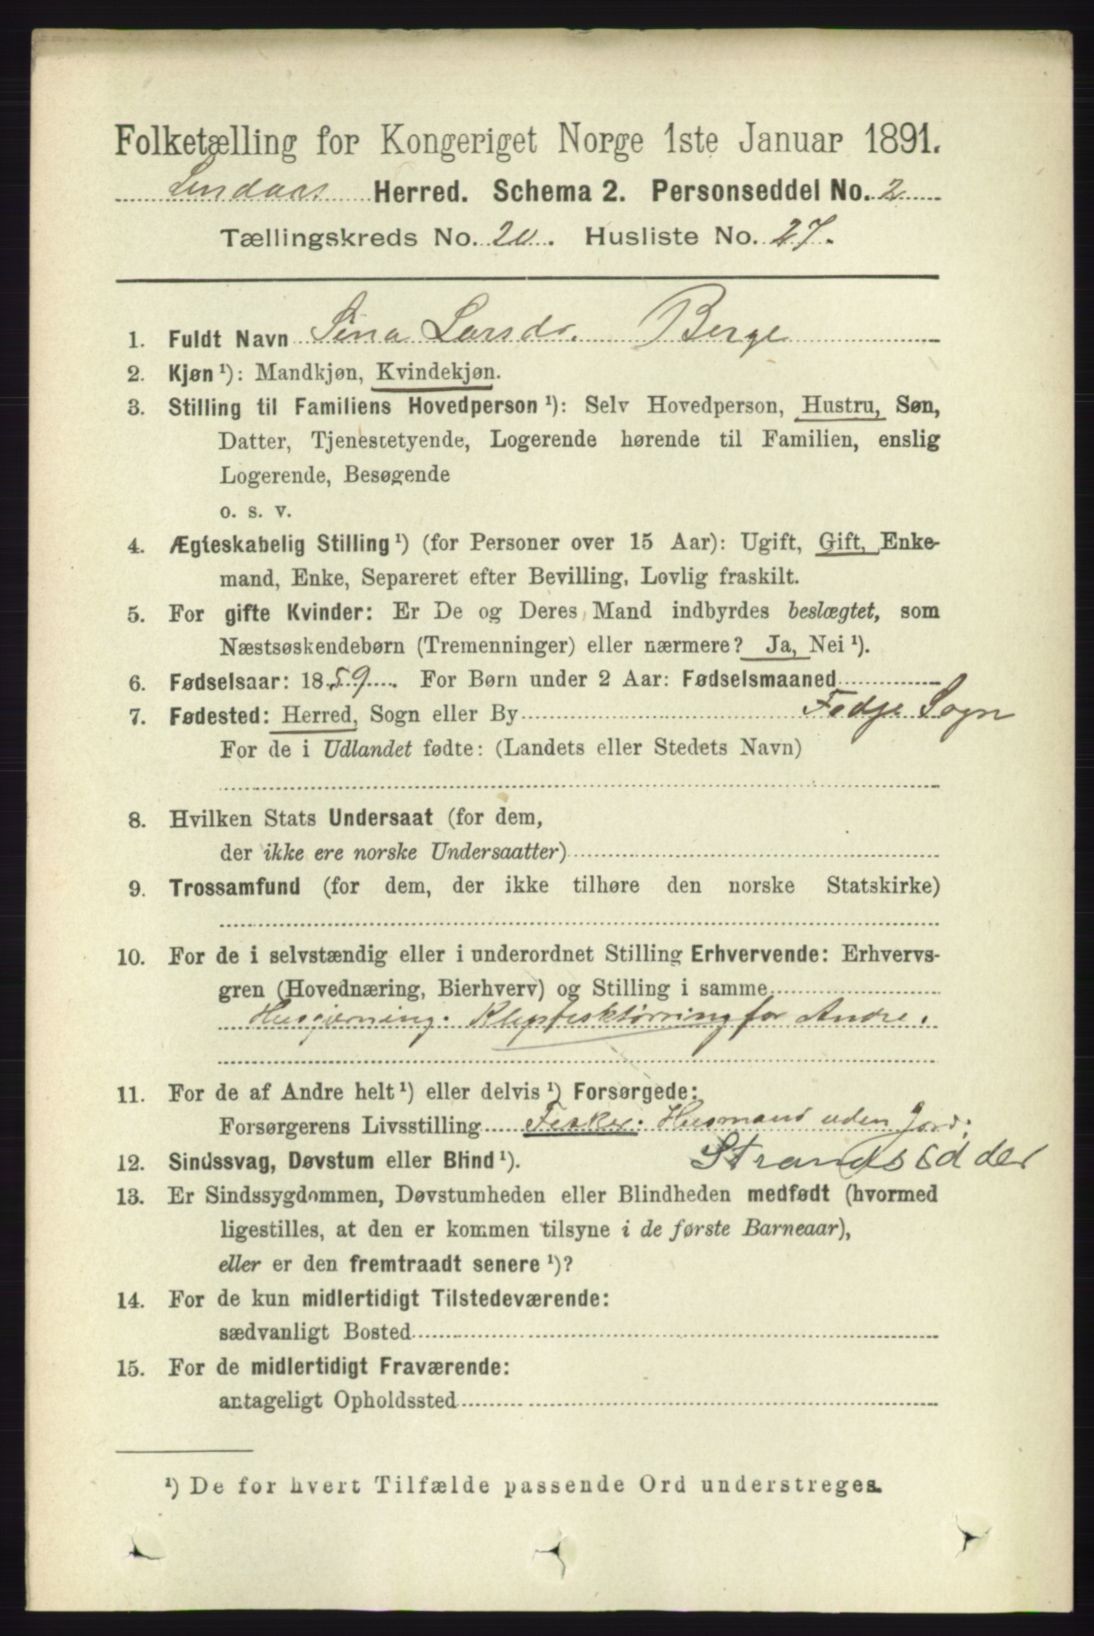 Folketælling for Kongeriget Norge 1ste Januar 1891.
Lindaas Herred. Schema 2. Personseddel No. 2
Tællingskreds No. 20. Husliste No. 27.
1. Fuldt Navn Sina Larsdr. Berge
2. Kjøn ¹): Mandkjøn, Kvindekjøn.
3. Stilling til Familiens Hovedperson ¹): Selv Hovedperson, Hustru, Søn,
Datter, Tjenestetyende, Logerende hørende til Familien, enslig
Logerende, Besøgende
o. s. v.
4. Ægteskabelig Stilling ¹) (for Personer over 15 Aar): Ugift, Gift, Enke-
mand, Enke, Separeret efter Bevilling, Lovlig fraskilt.
5. For gifte Kvinder: Er De og Deres Mand indbyrdes beslægtet, som
Næstsøskendebørn (Tremenninger) eller nærmere? Ja, Nei ¹).
6. Fødselsaar: 1859. For Børn under 2 Aar: Fødselsmaaned
7. Fødested: Herred, Sogn eller By Fedje Sogn
For de i Udlandet fødte: (Landets eller Stedets Navn)
8. Hvilken Stats Undersaat (for dem,
der ikke ere norske Undersaatter)
9. Trossamfund (for dem, der ikke tilhøre den norske Statskirke)
10. For de i selvstændig eller i underordnet Stilling Erhvervende: Erhvervs-
gren (Hovednæring, Bierhverv) og Stilling i samme
Husgjerning. Klipfisktørring for Andre.
11. For de af Andre helt ¹) eller delvis ¹) Forsørgede:
Forsørgerens Livsstilling Fisker. Husmand uden Jord;
12. Sindssvag, Døvstum eller Blind ¹). Strandsidder
13. Er Sindssygdommen, Døvstumheden eller Blindheden medfødt (hvormed
ligestilles, at den er kommen tilsyne i de første Barneaar),
eller er den fremtraadt senere ¹)?
14. For de kun midlertidigt Tilstedeværende:
sædvanligt Bosted
15. For de midlertidigt Fraværende:
antageligt Opholdssted
¹) De for hvert Tilfælde passende Ord understreges.